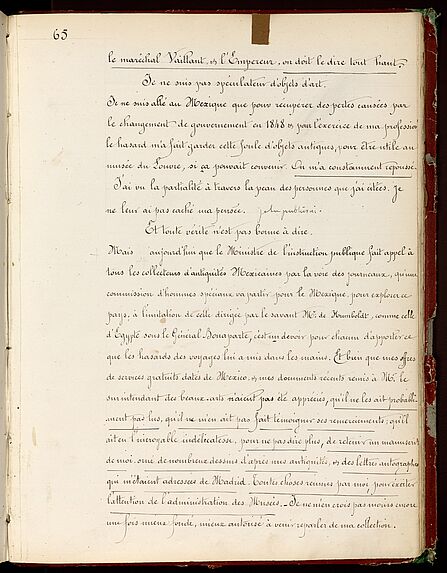 65
le maréchal Vaillant, et l'Empereur, on doit le dire tout haut.
Je ne suis pas spéculateur d'objets d'art.
Je ne suis allé au Mexique que pour récupérer des pertes causées par
le changement de gouvernement en 1848 et pour l'exercice de ma profession
le hasard m'a fait garder cette foule d'objets antiques, pour être utile au
musée du Louvre, si ça pouvait convenir. On m'a constamment repoussé.
J'ai vu la partialité à travers la peau des personnes que j'ai citées. Je
ne leur ai pas caché ma pensée.
Et toute vérité n'est pas bonne à dire.
Mais aujourd'hui que le Ministre de l'instruction publique fait appel à
tous les collecteurs d'antiquités Mexicaines par la voie des journeaux, qu'une
commission d'hommes spéciaux va partir pour le Mexique, pour explorer ce
pays, à l'imitation de celle dirigée par le savant Mr. de Humboldt, comme celle
d'Egypte sous le Général Bonaparte, c'est un devoir pour chacun d'apporter ce
que les hasards des voyages lui a mis dans les mains. Et bien que mes offres
de services gratuits datés de Mexico, et mes documents récents remis à Mr. le
surintendant des beaux-arts n'aient pas été appréciés, qu'il ne les ait probable
ment pas lus, qu'il ne m'en ait pas fait témoigner ses remerciements; qu'il
ait eu l'incroyable indélicatesse, pour ne pas dire plus, de retenir un manuscrit
de moi, orné de nombreux dessins d'après mes antiquités, et des lettres autographes
qui m'étaient adressées de Madrid. Toutes choses reunies par moi pour exciter
l'attention de l'administration des Musées. Je ne m'en crois pas moins encore
une fois mieux fondé, mieux autorisé à venir reparler de ma collection.